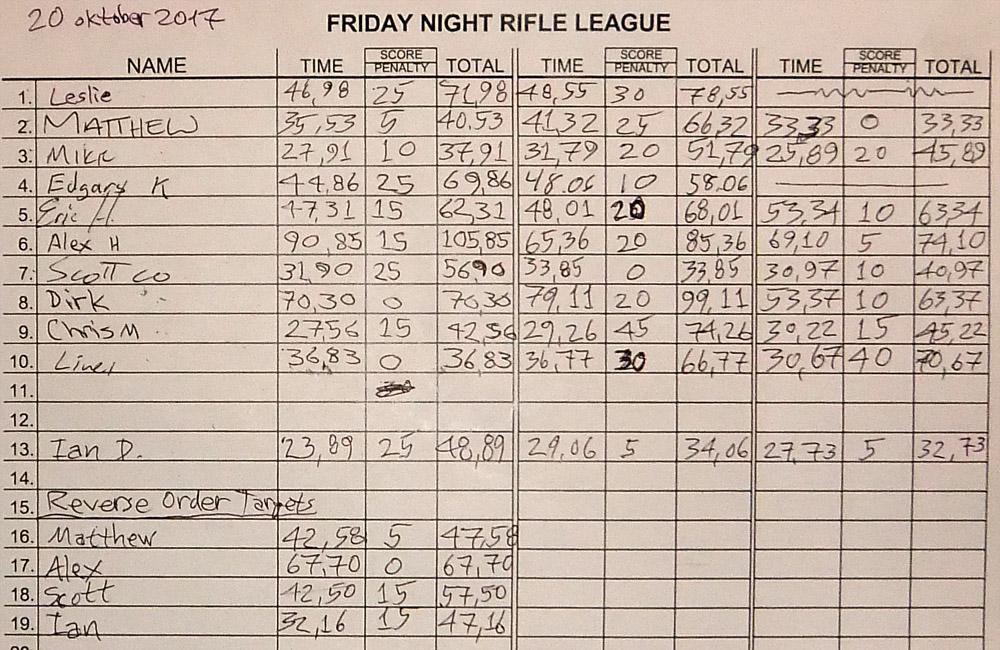 20 oktober 2017
FRIDAY NIGHT RIFLE LEAGUE
NAME TIME SCORE PENALTY TOTAL TIME SCORE PENALTY TOTAL TIME SCORE PENALTY TOTAL
1. Leslie 46,98 25 71,98 48,55 30 78,55
2. MATTHEW 35,53 5 40.53 41,32 25 66,32 33,33 0 33,33
3. MIKE 27,91 10 37,91 31,79 20 51,79 25,89 20 45,89
4. Edgars K 44,86 25 69,86 48.06 10 58.06
5. Eric H. 47,31 15 62,31 48,01 20 68,01 53,34 10 63,34
6. Alex H 90,85 15 105,85 65,36 20 85,36 69,10 5 74,10
7. SCOTT CO 31,90 25 56,90 33,85 0 33,85 30,97 10 40,97
8. Dirk 70,30 0 70,30 79,11 20 99,11 53,37 10 63,37
9. Chris M 27,56 15 42,56 29,26 45 74,26 30,22 15 45,22
10. 36,83 0 36,83 36,77 30 66,77 30,67 40 70,67
11.
12.
13. Ian D. 23,89 25 48,89 29,06 5 34,06 27,73 5 32,73
14.
15. Reverse Order Targets
16. Matthew 42,58 5 47,58
17. Alex 67,70 0 67,70
18. Scott 42,50 15 57,50
19. Ian 32,16 15 47,16